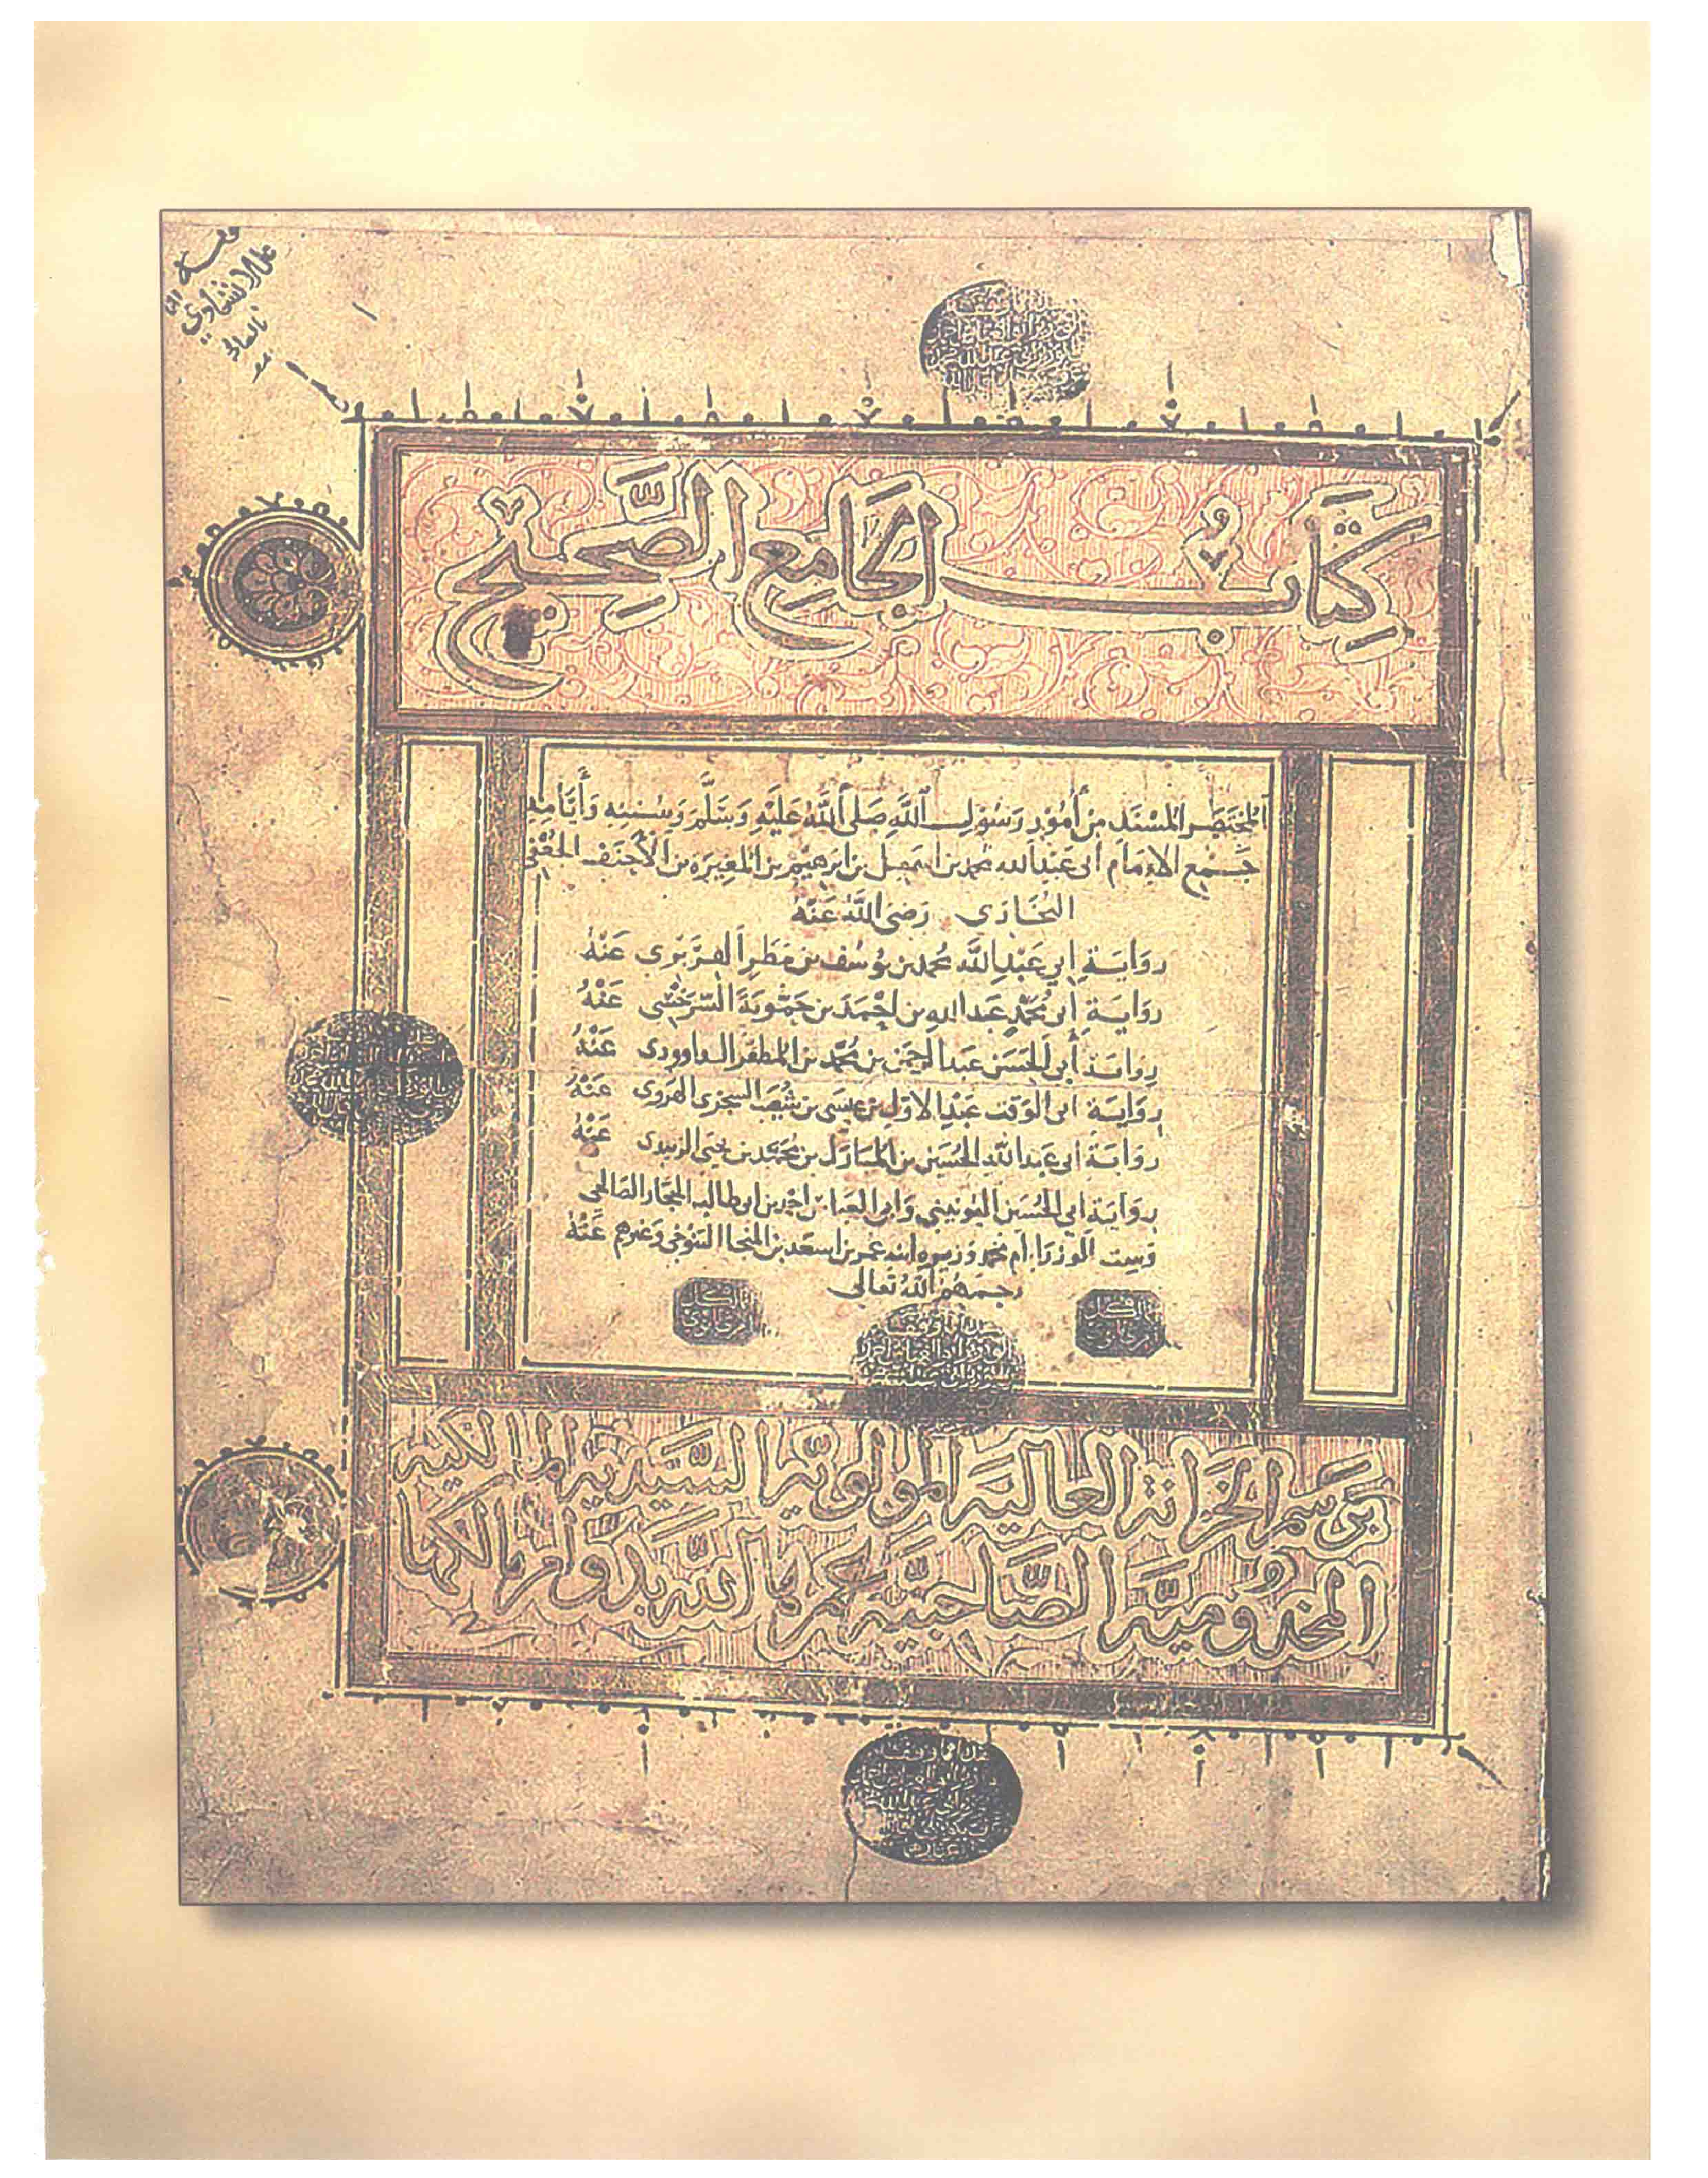 كِتَابُ الجَامِعِ الصَّحِيْحِ
المختصر المُسْنَد مِنْ أُمُوْرِ رَسُوْلِ اللَّهِ صَلَّى اللَّهُ عَلَيْهِ وَسَلَّمَ وَسُنَنِهِ وَأَيَّامِهِ
جَمْع الإمَام أبى عَبْدِ الله محمد بن اسمعيل بن ابرهيم بن المغيرة بن الأحنف الجُعْفى
البخارى رَضِىَ اللَّهُ عَنْهُ
رِوَايَة ابى عَبْدِ اللَّه مُحمد بن يُوسُف بن مَطَر الفَرَبْرى عَنْهُ
رِوَايَة أبى مُحَمَّد عَبد الله بن احْمَدَ بن حَمُّوْيَةَ السَّرَخْسِى عَنْهُ
رِوايَة أبى الحَسَن عَبد الرحمن بن مُحَمَّد بن المظفر الداوودى عَنْهُ
رِوَايَة ابى الوَقت عَبْدِ الاوّل بن عيسَى بن شُعَيب السجزى الهروى عَنْهُ
رِوَايَة ابى عَبد اللَّه الحُسَين بن المبارك بن مُحَمَّد بن يحيى الزبيدى عَنْهُ
رِوَايَة ابى الحُسَين اليُونينى وَابى العَباس احمد بن ابى طالب الحجّار الصَّالحى
وَست الوزرا ام محمد وزيره ابنه عمر بن اسعَد بن المنجا التنوخى وَغيرهم عَنْهُ
رحمهم اللَّهُ تعالى
بِرَسْمِ الخِزَانَةِ العَالِيَةِ المَوْلَوِيَّةِ السَّيِّدِيَّةِ المَالِكِيَّة
المَخْدُومِيَّةِ الصَّاحِبِيَّةِ عَمَّرَهَا اللَّه بِدَوَامِ مَالِكِهَا